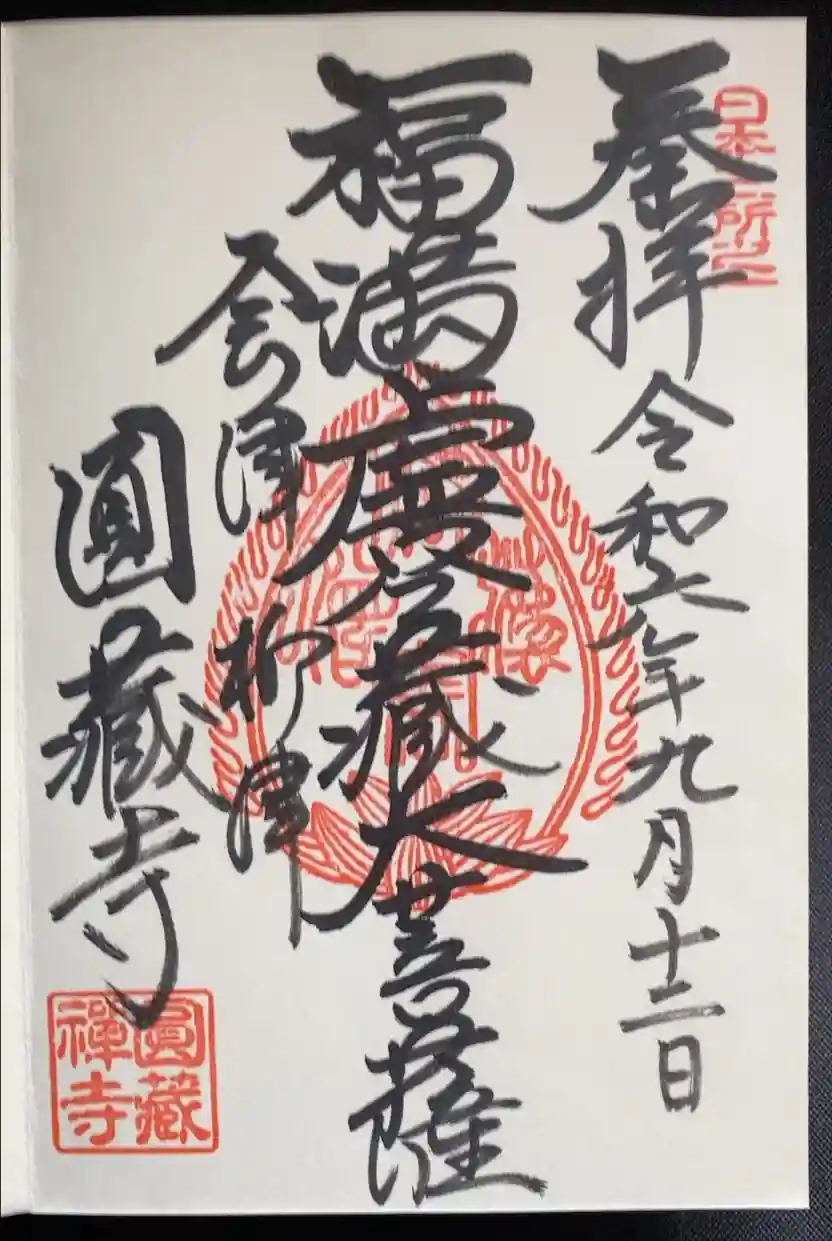 奉拜 令和六年九月十二日
日本三所之一
福満虚空藏大菩薩
会津柳津
圓藏寺
圓藏
禅寺